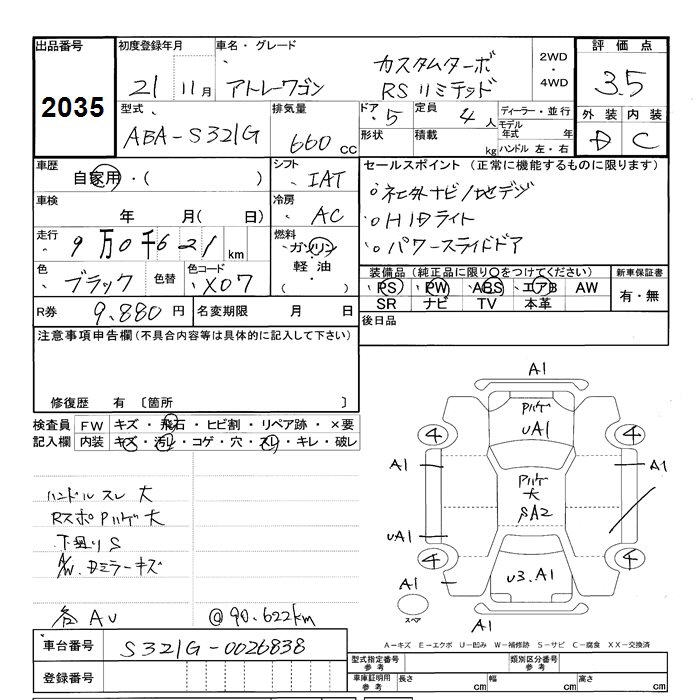 出品番号 初度登録年月 車名・グレード 評価点
2035
21 11月 アトレーワゴン カスタムターボ RSリミテッド 2WD・4WD 3.5
型式 排気量 ドア 5 定員 4人 ディーラー・並行 外装 内装
ABA-S321G 660cc 形状 積載 kg モデル年式 年 ハンドル 左・右 D C
車歴 自家用・( ) シフト IAT セールスポイント (正常に機能するものに限ります)
車検 年 月(日) 冷房 AC 。社外ナビ/地デジ
。HIDライト
走行 9万0千621km 燃料 ガソリン・軽油・( ) 。パワースライドドア
色 ブラック 色替 色コード X07 装備品(純正品に限り○をつけてください) 新車保証書
PS PW ABS エアB AW 有・無
SR ナビ TV 本革
R券 9,880円 名変期限 月 日 後日品
注意事項申告欄(不具合内容等は具体的に記入して下さい)
修復歴 有 〔箇所 〕
検査員 FW キズ・飛石・ヒビ割・リペア跡・×要
記入欄 内装 キズ・汚レ・コゲ・穴・スレ・キレ・破レ
ハンドルスレ大
RスポPハゲ大
下廻りS
A/W、Dミラーキズ
各AU @90.622km
車台番号 S321G-0026838
登録番号
A1
Pハゲ
UA1
4 4
A1 A1
Pハゲ
大
SA2
UA1
4 4
A1 U3.A1
スペア
A1
A-キズ E-エクボ U-凹み W-補修跡 S-サビ C-腐食 XX-交換済
型式指定番号 参考 類別区分番号 参考
車庫証明用 参考 長さ cm 幅 cm 高さ cm